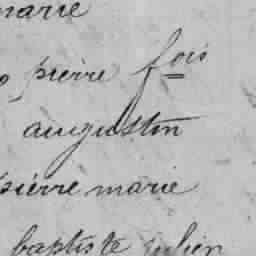 marie
pierre fois
augustin
pierre marie
baptiste julien